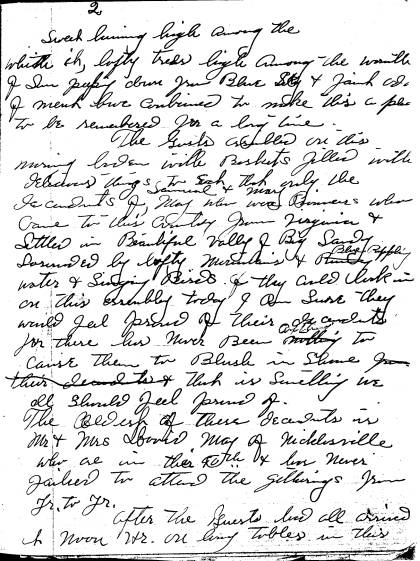 2
Sweet humming high among the
which ok, lofty trees high among the warmth
of Sun peeping down from Blue Sky & faint
of have combined to make this a place
to be remembered for a long time.
The Guests on this
morning laden with Baskets filled with
delicious things to Eat that only the
decendents of Samuel & Mary May who were Pioneers who
Came to this Country from Virginia &
Settled in Beautiful Valley of Big Sandy
Sorounded by lofty Mountains & Blue Rippling
water & Singing Birds. if they could look in
on this assembly today I am Sure they
would feel proud of their decendents
for there has Never Been anything to
Cause them to Blush in Shame from
their decendents & that is Something we
all Should feel proud of.
The Oldest of these decendents is
Mr & Mrs David May of Nicklesville
who are in their 80th & has Never
failed to attend the gatherings from
Yr. to Yr.
After the Guests had all arrived
at Noon Hr. on long tables in this